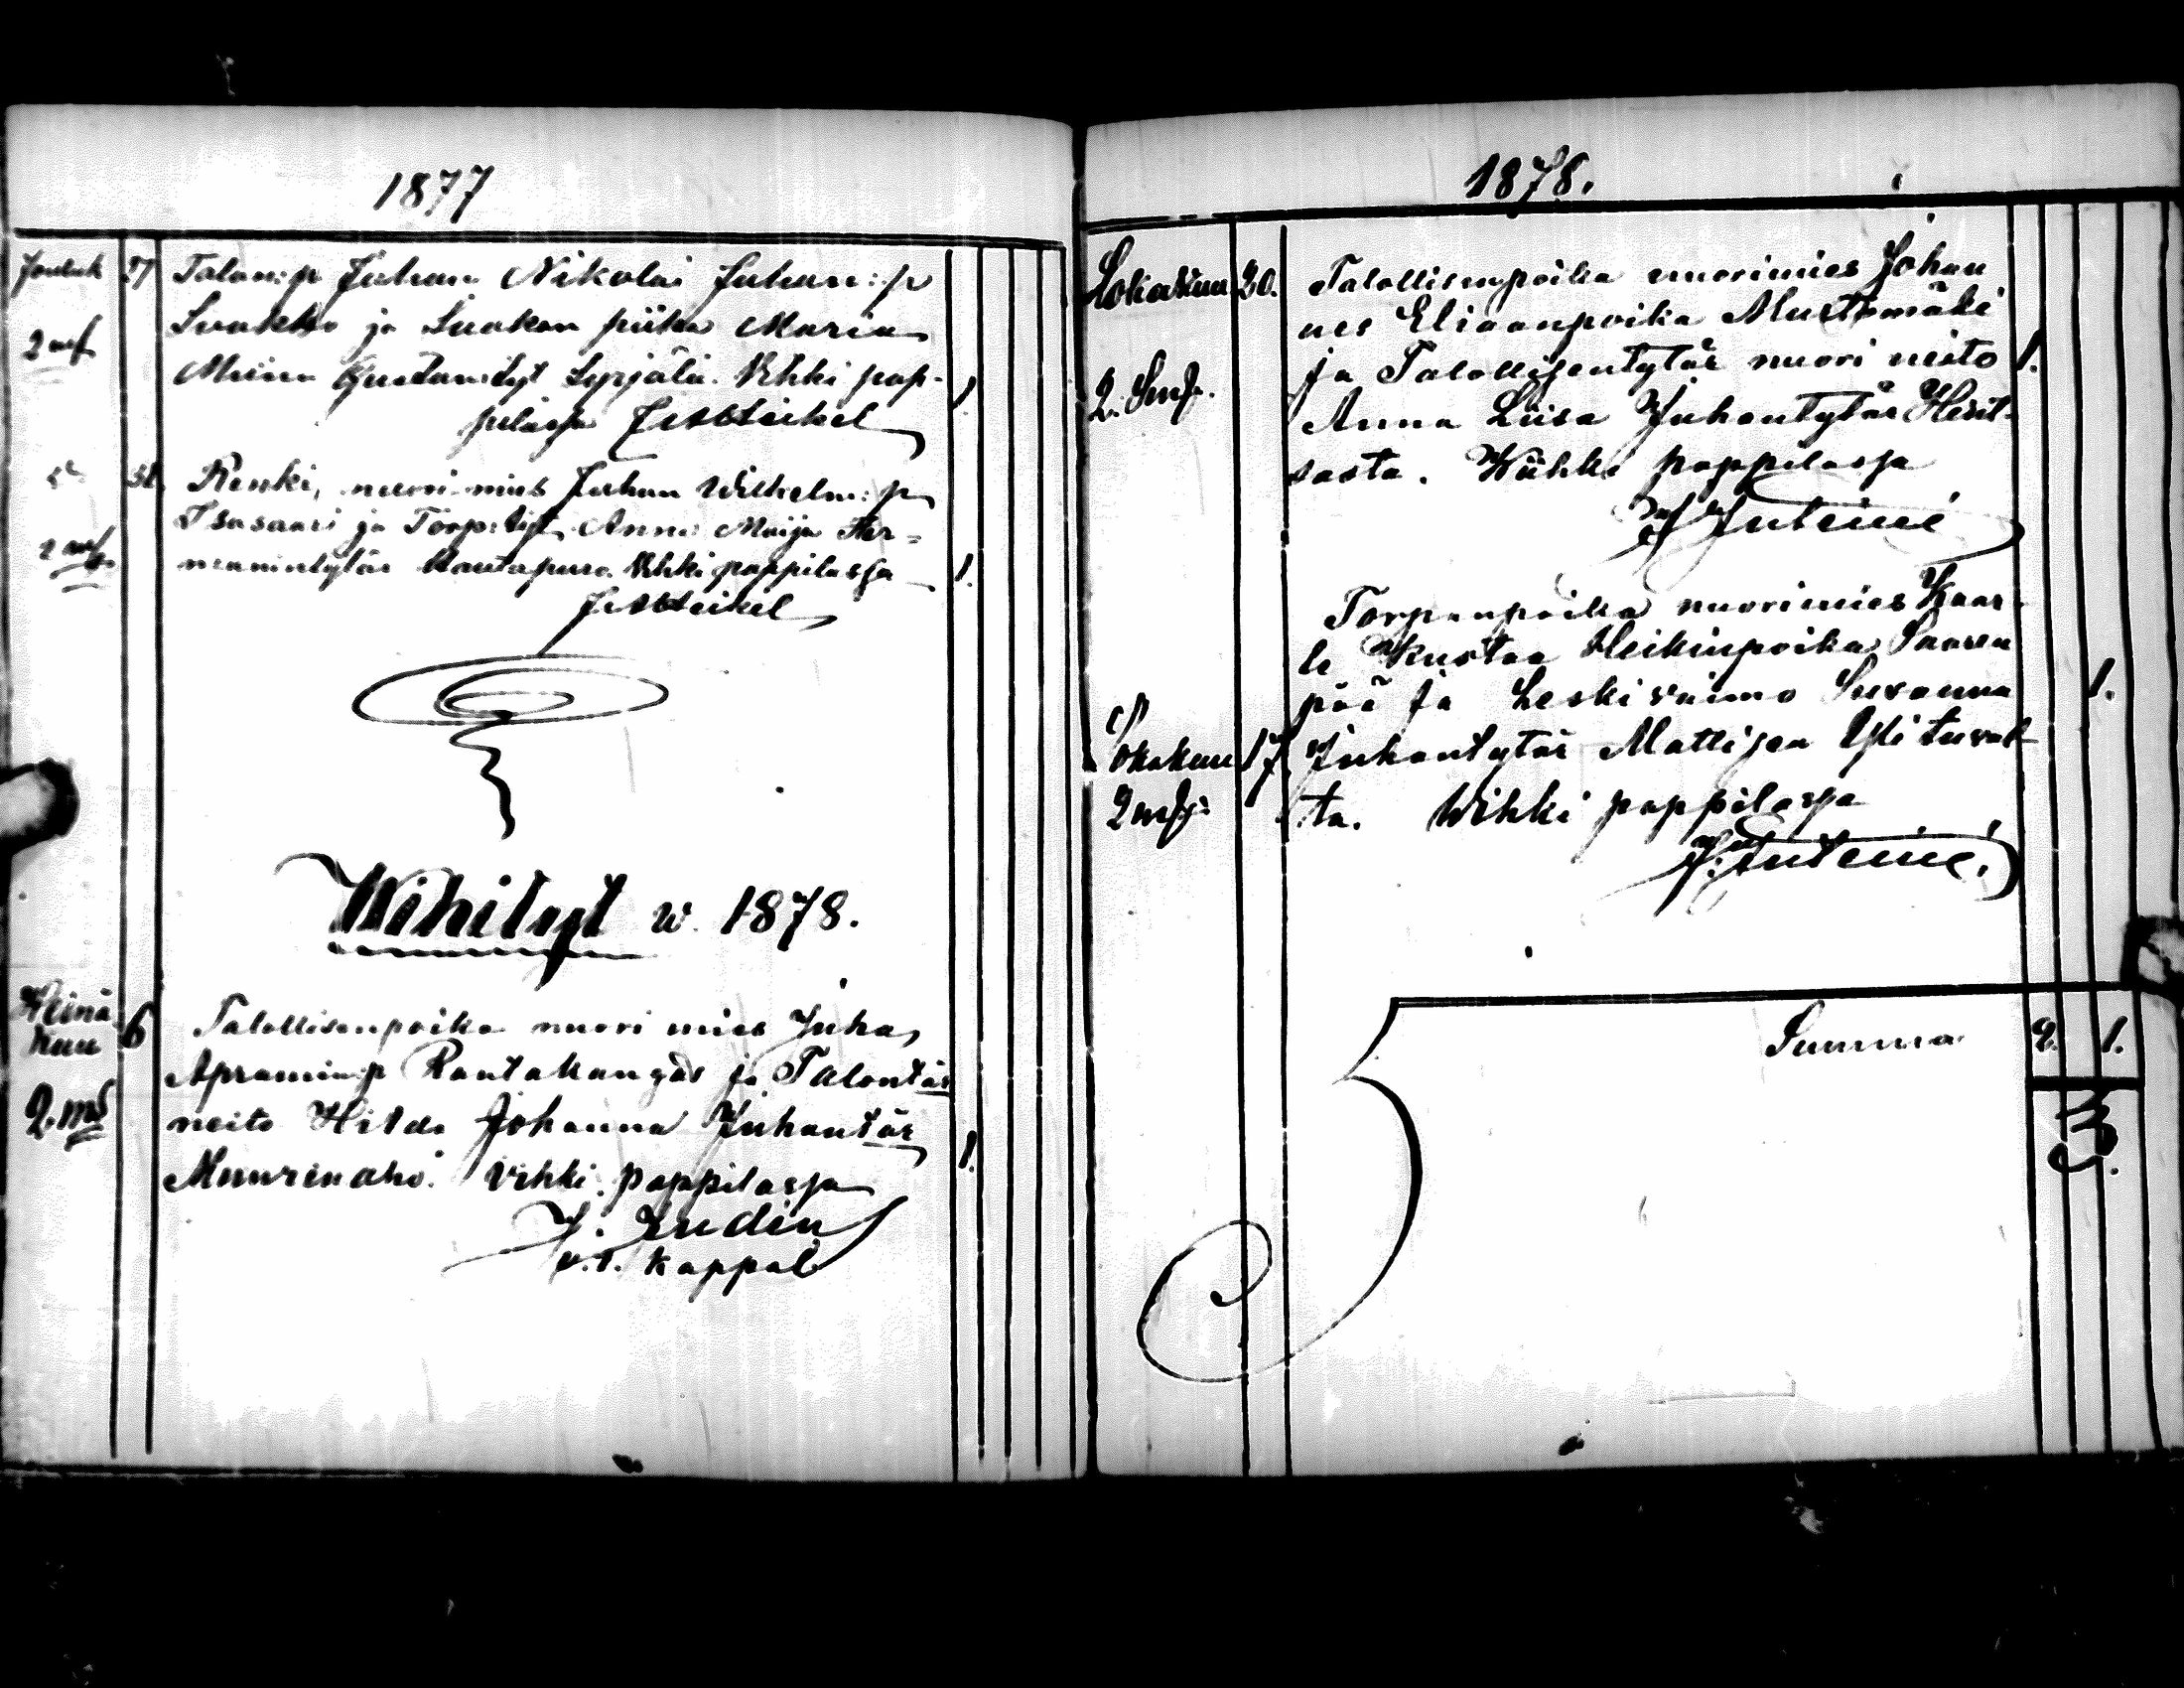 1877
Jouluk 27 Talon:p Juhan Nikolai Juhan:p
Luokko ja Luokon piika Maria
2 mf.
Miina Kustan:tyt Syrjälä. Vihki pap-
pilassa 1
31 Renki, nuori mies Juhan Wilhelm:p
Isusaari ja Torp:tyt. Anna Maija Her-
2 mf.
mannintytär Rautapuro. Vihki pappilassa 1.
Wihityt w. 1878.
Heinä-
kuu 6 Talollisenpoika nuori mies Juha
Apramin:p Rautakangas ja Talontär
2. mf
neito Hilda Johanna Juhantär 1.
Muurinaho. Vihki pappilassa
J. Ludin
v.t. kappal
1878.
Lokakuu 20. Talollisenpoika nuorimies Johan
nes Eliaanpoika Mustamäki
ja Talollisentytär nuori neito 1.
2. Smf.
Anna Liisa Juhantytär Hint-
sasta. Wiihki pappilassa
J Juteini
Torpanpoika nuorimies Kaar-
le Kustaa Heikinpoika Saaren
pää ja Leskivaimo Susanna 1.
okakuu 17 Juhantytär Matisen Ylituval-
2 mf.
ta. Wihki pappilassa
J. Juteini.
Summa 2. 1.
3.